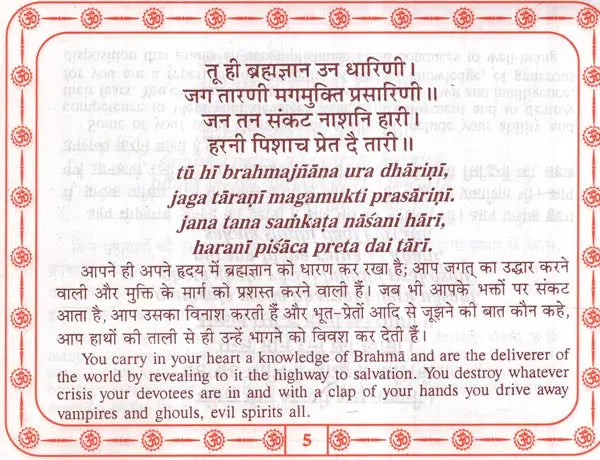 तू ही ब्रह्मज्ञान उन धारिणी।
जग तारणी मगमुक्ति प्रसारिणी॥
जन तन संकट नाशनि हारी।
हरनी पिशाच प्रेत दै तारी॥
tū hī brahmajñāna ura dhāriṇī,
jaga tāraṇī magamukti prasāriṇī.
jana tana saṁkaṭa nāśani hārī,
haranī piśāca preta dai tārī.
आपने ही अपने हृदय में ब्रह्मज्ञान को धारण कर रखा है; आप जगत् का उद्धार करने
वाली और मुक्ति के मार्ग को प्रशस्त करने वाली हैं। जब भी आपके भक्तों पर संकट
आता है, आप उसका विनाश करती हैं और भूत-प्रेतों आदि से जूझने की बात कौन कहे,
आप हाथों की ताली से ही उन्हें भागने को विवश कर देती हैं।
You carry in your heart a knowledge of Brahmā and are the deliverer of
the world by revealing to it the highway to salvation. You destroy whatever
crisis your devotees are in and with a clap of your hands you drive away
vampires and ghouls, evil spirits all.
5